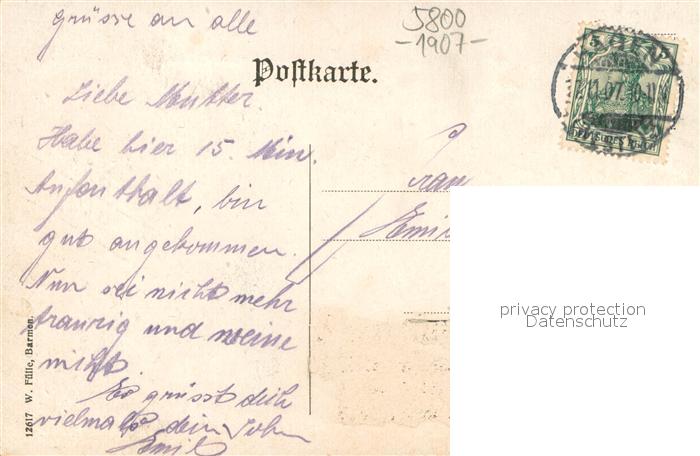 grüsse an alle
5800
-1907-
Postkarte.
Liebe Mutter.
Habe hier 15. Min.
Aufenthalt, bin
gut angekommen.
Nun sei nicht mehr
traurig und weine
nicht.
Es grüsst dich
vielmals dein Sohn
Emil
Frau
Emil
12617 W. Fülle, Barmen.
privacy protection
Datenschutz